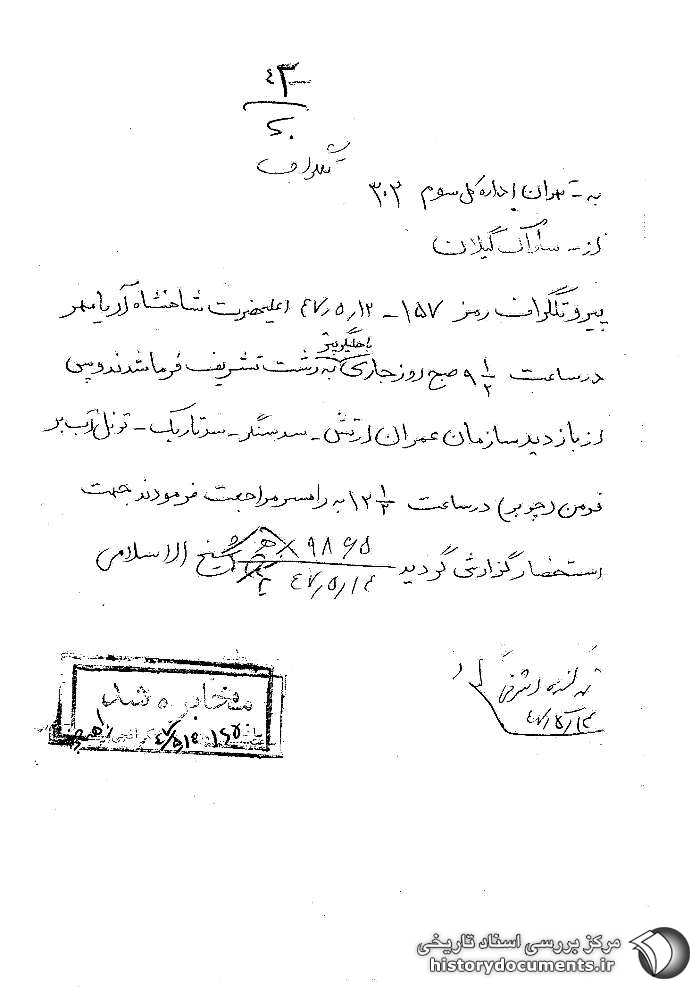 ۴۳
۲۰
تلگراف
به - تهران اداره کل سوم ۳۰۲
از - ساواک گیلان
پیرو تلگراف رمز ۱۵۷ - ۴۷٫۵٫۱۲ اعلیحضرت شاهنشاه آریامهر
با هلیکوپتر
در ساعت ۹ ۱/۲ صبح روز جاری به رشت تشریف فرما شدند و پس
از بازدید سازمان عمران ارتش - سد سنگر - سد تاریک - تونل آب بر
فومن (          ) در ساعت ۱۲ ۱/۲ به رامسر مراجعت فرمودند جهت
استحضار گزارش گردید ۹۸۶۵ شیخ الاسلامی
۴۷٫۵٫۱۴
۴۷٫۵٫۱۴
مخابره شد
مرکز بررسی اسناد تاریخی
historydocuments.ir